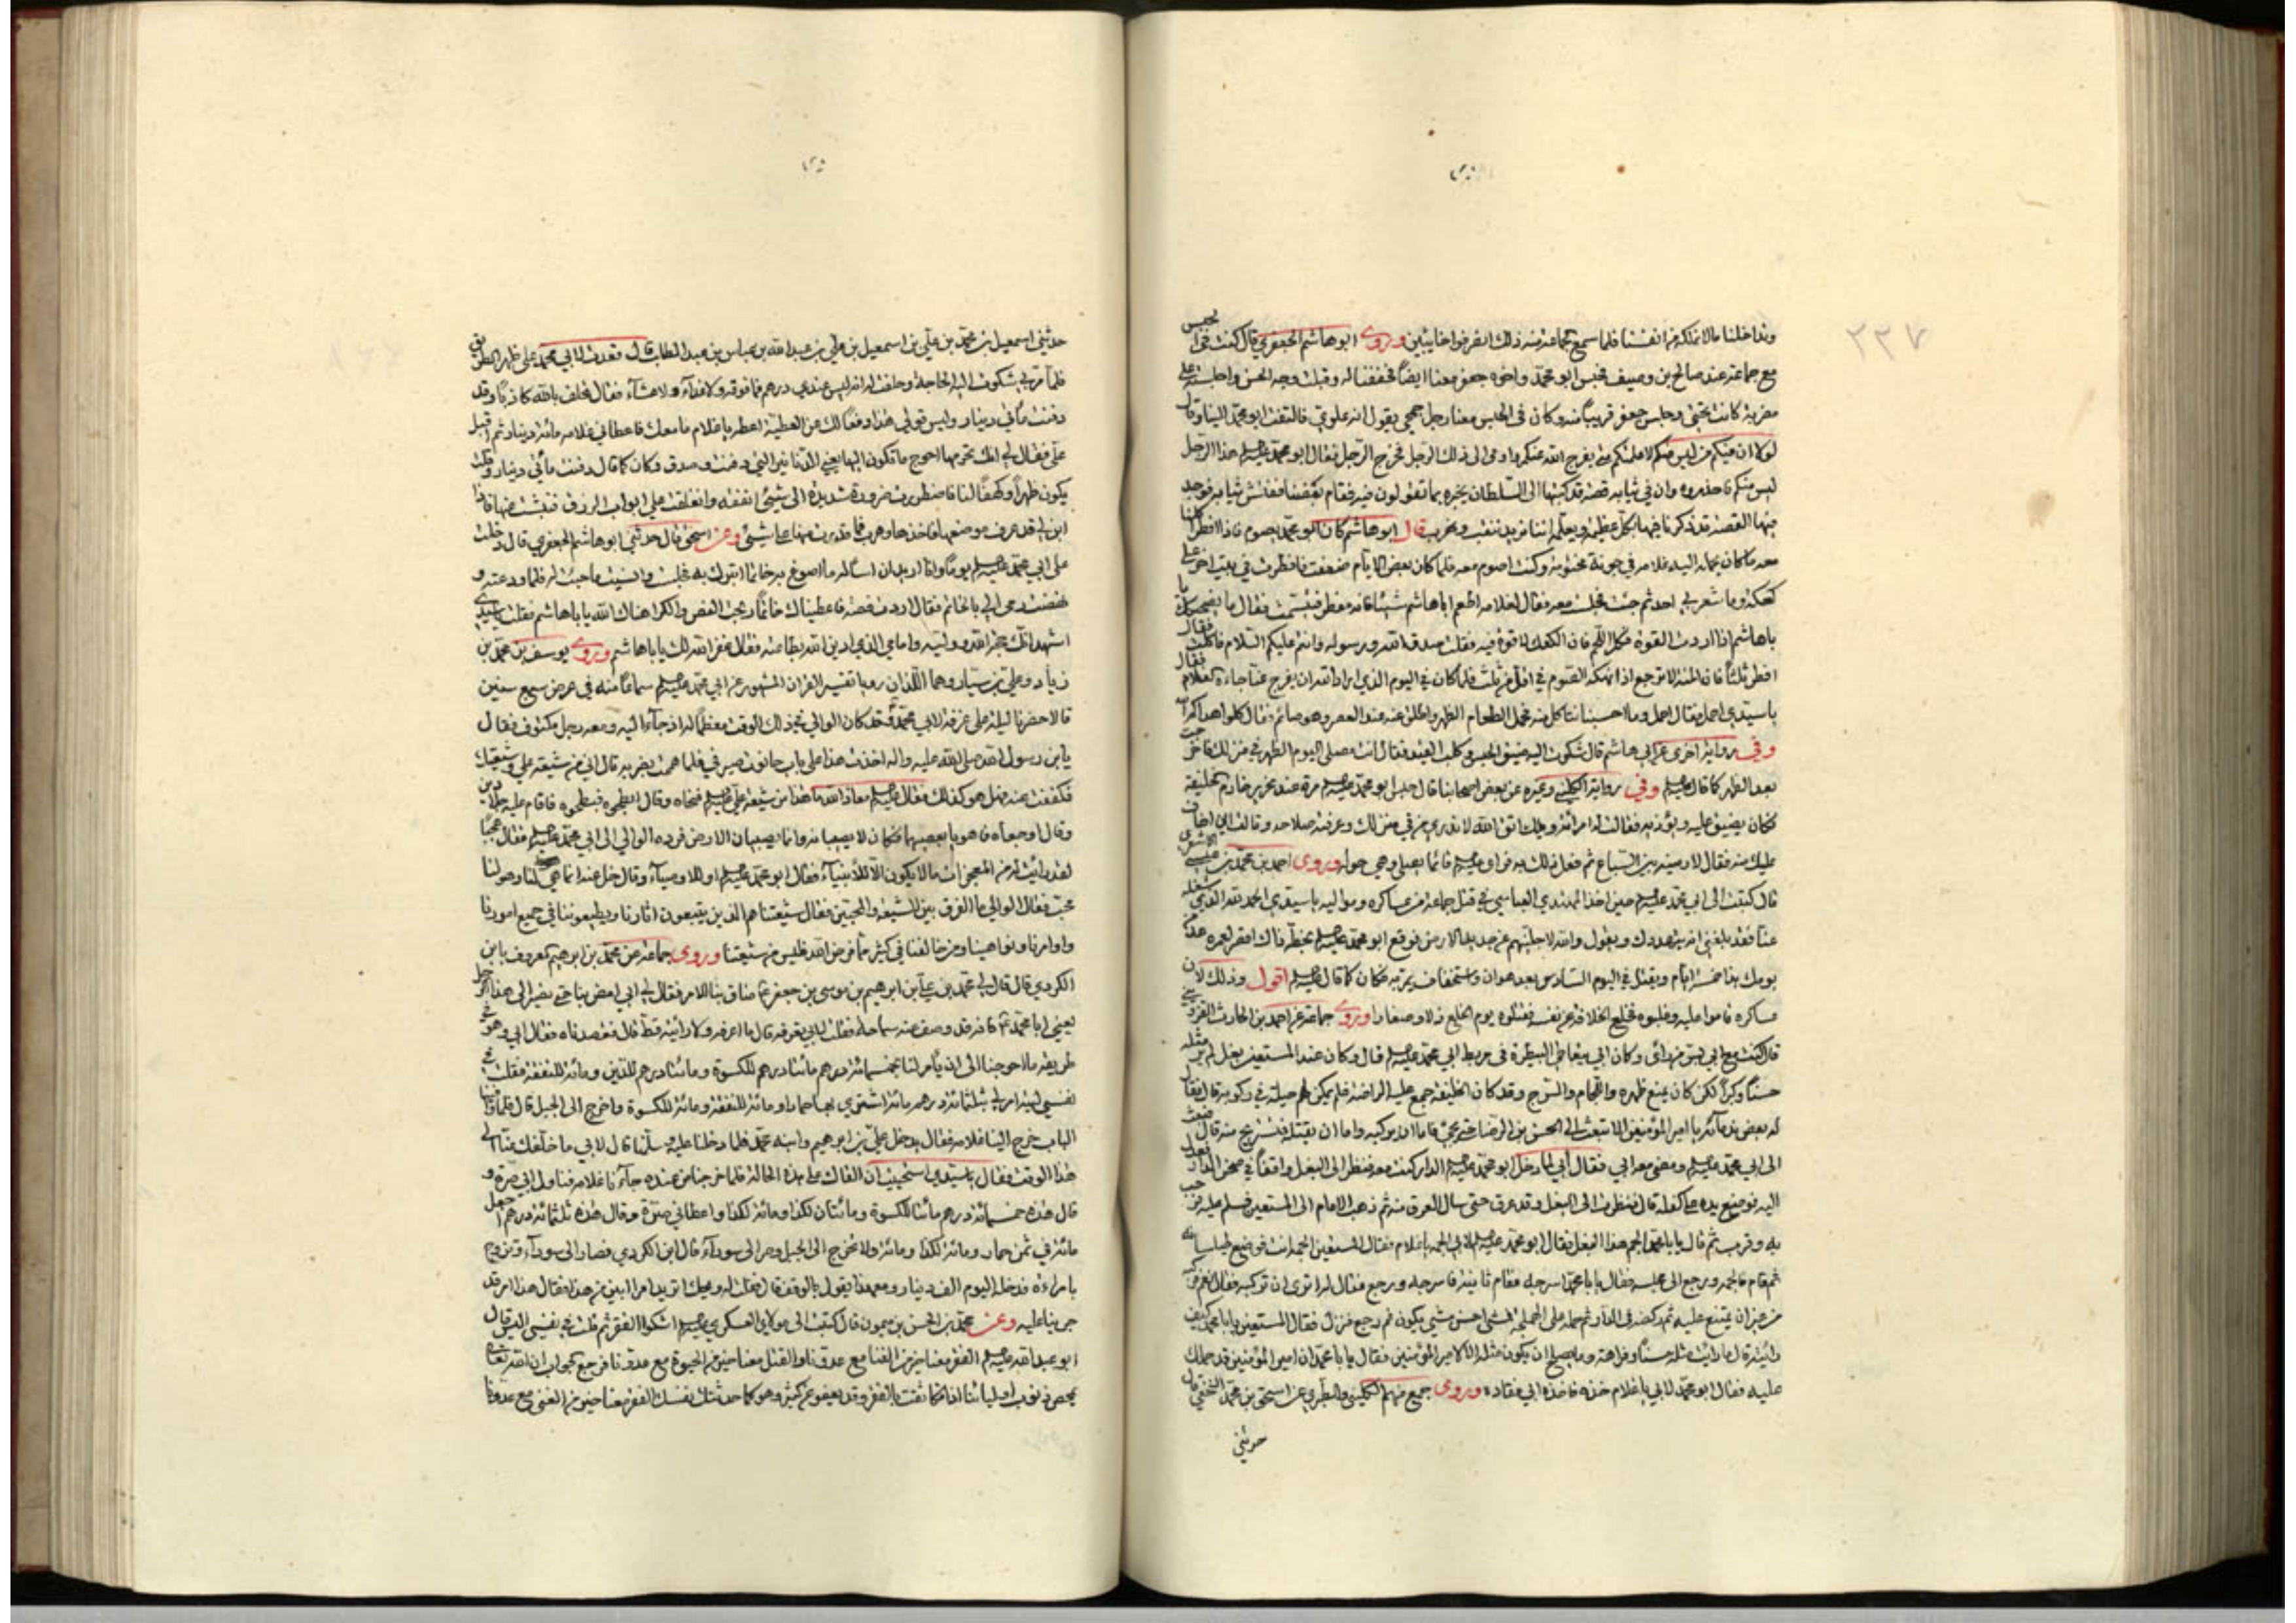 ٣٣٧
وتداخلنا مالا نملكه من انفسنا فلما سمع الجماعة منه ذلك انصرفوا خايبين وروى ابو هاشم الجعفري قال كنت في الحبس
مع جماعة عند صالح بن وصيف فحبس ابو محمد واخوه جعفر معنا ايضا فخففنا له وقبلت وجه الحسن واجلسته على
مضربة كانت تحتي وجلس جعفر قريبا منه وكان في الحبس معنا رجل جمحي يقول انه علوي فالتفت ابو محمد الينا وقال
لولا ان فيكم من ليس منكم لاعلمتكم متى يفرج الله عنكم واومى الى ذلك الرجل فخرج الرجل فقال ابو محمد هذا الرجل
ليس منكم فاحذروه وان في ثيابه قصة قد كتبها الى السلطان يخبره بما تقولون فيه فقام بعضنا ففتش ثيابه فوجد
فيها القصة قد ذكرنا فيها بكل عظيمة ويعلمه اننا نريد ننقب ونهرب قال ابو هاشم كان ابو محمد يصوم فاذا افطر اكلنا
معه ما كان يحمله اليه غلامه في جونة مختومة وكنت اصوم معه فلما كان بعض الايام ضعفت فافطرت في بيت اخر على
كعكة وما شعر بي احد ثم جئت فجلست معه فقال لغلامه اطعم ابا هاشم شيئا فانه مفطر فتبسمت فقال ما يضحكك يا
باهاشم اذا اردت القوة فكل اللحم فان الكعك لا قوة فيه فقلت صدق الله ورسوله وانتم عليكم السلام فاكلت فقال
افطر ثلثا فان المنة لا ترجع اذا نهكه الصوم في اقل من ثلث فلما كان في اليوم الذي اراد الله ان يفرج عنا جاءه الغلام فقال
يا سيدي احمل فقال احمل وما احسبنا ناكل منه فحمل الطعام الظهر واطلق عنه عند العصر وهو صائم وقال كلوا هداكم الله
وفي رواية اخرى عن ابي هاشم قال شكوت اليه ضيق الحبس وكلب القيد فقال انت مصلي اليوم الظهر في منزلك فاخرجت
بعد الظهر كما قال وفي رواية الكليني وغيره عن بعض اصحابنا قال حبس ابو محمد مرة عند نحرير خادم الخليفة
فكان يضيق عليه ويؤذيه فقالت له امراته ويلك اتق الله لا تدري من في منزلك وعرفته صلاحه وقالت اني اخاف
عليك منه فقال لارمينه بين السباع ثم فعل ذلك به فراى قائما يصلي وهي حوله وروى احمد بن محمد بن عيسى الاشعري
قال كتبت الى ابي محمد حين اخذ المهتدي العباسي في قتل جماعة من عساكره ومواليه يا سيدي الحمد لله الذي شغله
عنا فقد بلغني انه يتهددك ويقول والله لاجلينهم عن جديد الارض فوقع ابو محمد بخطه ذاك اقصر لعمره عد من
يومك هذا خمسة ايام ويقتل في اليوم السادس بعد هوان واستخفاف يمر به فكان كما قال اقول وذلك لان
عساكره قاموا عليه وغلبوه فخلع الخلافة عن نفسه فقتلوه يوم الخلع ذلا وصغارا وروى جماعة عن احمد بن الحارث القزويني
قال كنت مع ابي بسر من راى وكان ابي يتعاطى البيطرة في مربط ابي محمد قال وكان عند المستعين بغل لم ير مثله
حسنا وكبرا لكن كان يمنع ظهره واللجام والسرج وقد كان الخليفة جمع عليه الراضة فلم يمكن لهم حيلة في ركوبه قال فقال
له بعض ندمائه يا امير المؤمنين الا تبعث الى الحسن بن الرضا حتى يجئ فاما ان يركبه واما ان يقتله فتستريح منه قال فبعث
الى ابي محمد ومضى معه ابي فقال ابي لما دخل ابو محمد الدار كنت معه فنظر الى البغل واقفا في صحن الدار فعدل
اليه فوضع يده على كفله قال فنظرت الى البغل وقد عرق حتى سال العرق منه ثم ذهب الامام الى المستعين فسلم عليه فرحب
به وقرب ثم قال يا با محمد الجم هذا البغل فقال ابو محمد لابي الجمه يا غلام فقال المستعين الجمه انت فوضع طيلسانه
ثم قام فالجمه ورجع الى مجلسه فقال يا با محمد اسرجه فقام ثانية فاسرجه ورجع فقال له اترى ان تركبه فقال نعم فركبه
من غير ان يمتنع عليه ثم ركضه في الدار ثم حمله على الهملجة فمشى احسن مشي يكون ثم رجع فنزل فقال المستعين يا با محمد كيف
رايته قال ما رايت مثله حسنا وفراهة وما يصلح ان يكون مثله الا لامير المؤمنين فقال يا با محمد ان امير المؤمنين قد حملك
عليه فقال ابو محمد لابي يا غلام خذه فاخذه ابي فقاده وروى جمع منهم الكليني والطبري عن اسحق بن محمد النخعي قال
حدثني
حدثني اسمعيل بن محمد بن علي بن اسمعيل بن علي بن عبد الله بن عباس بن عبد المطلب قال قعدت لابي محمد على ظهر الطريق
فلما مر بي شكوت اليه الحاجة وحلفت له انه ليس عندي درهم فما فوقه ولا غداء ولا عشاء فقال تحلف بالله كاذبا وقد
دفنت مأتي دينار وليس قولي هذا دفعا لك عن العطية اعطه يا غلام ما معك فاعطاني غلامه مائة دينار ثم اقبل
علي فقال لي انك تحرمها احوج ما تكون اليها يعني الدنانير التي دفنت وصدق وكان كما قال دفنت مأتي دينار وقلت
يكون ظهرا وكهفا لنا فاضطررت ضرورة شديدة الى شيئ انفقه وانغلقت علي ابواب الرزق فنبشت عنها فاذا
ابن لي قد عرف موضعها فاخذها وهرب فما قدرت منها على شيئ وعن اسحق قال حدثني ابو هاشم الجعفري قال دخلت
على ابي محمد يوما وانا اريد ان اساله ما اصوغ به خاتما اتبرك به فجلست وانسيت ما جئت له فلما ودعته و
نهضت رمى الي بالخاتم فقال اردت فضة فاعطيناك خاتما ربحت الفص والكرا هناك الله يا با هاشم فقلت يا سيدي
اشهد انك حجة الله ووليه وامامي الذي ادين الله بطاعته فقال غفر الله لك يا با هاشم وروى يوسف بن محمد بن
زياد وعلي بن سيار وهما اللذان رويا تفسير القران المشهور عن ابي محمد سماعا منه في عرض سبع سنين
قالا حضرنا ليلة على غرفة لابي محمد وقد كان الوالي في ذلك الوقت معظما له اذ جاء اليه ومعه رجل مكتوف فقال
يا بن رسول الله صلى الله عليه واله اخذت هذا على باب حانوت صيرفي فلما هممت بضربه قال اني من شيعة علي وشيعتك
فكففت عنه فهل هو كذلك فقال معاذ الله ما هذا من شيعة علي فنحاه وقال ابطحوه فبطحوه فاقام عليه جلادين
وقال اوجعاه فاهويا بعصيهما فكان لا يصيبانه وانما يصيبان الارض فرده الوالي الى ابي محمد فقال عجبا
لقد رايت له من المعجزات ما لا يكون الا للانبياء فقال ابو محمد او للاوصياء وقال خل عنه انما هي لنا وهو لنا
محب فقال الوالي ما الفرق بين الشيعة والمحبين فقال شيعتنا هم الذين يتبعون اثارنا ويطيعوننا في جميع امورنا
واوامرنا ونواهينا ومن خالفنا في كثير مما فرض الله فليس من شيعتنا وروى جماعة عن محمد بن ابرهيم المعروف بابن
الكردي قال قال لي محمد بن علي بن ابرهيم بن موسى بن جعفر لما ضاق بنا الامر فقال لي ابي امض بنا حتى نصير الى هذا الرجل
يعني ابا محمد فانه قد وصف عنه سماحة فقلت لابي تعرفه قال ما اعرفه ولا رايته قط قال فقصدناه فقال ابي وهو في
طريقه ما احوجنا الى ان يأمر لنا بخمسمائة درهم مائتا درهم للكسوة ومائتا درهم للدين ومائة للنفقة فقلت في
نفسي ليته امر لي بثلثمائة درهم مائة اشتري بها حمارا ومائة للنفقة ومائة للكسوة واخرج الى الجبل قال فلما وافينا
الباب خرج الينا غلامه فقال يدخل علي بن ابرهيم وابنه محمد فلما دخلنا عليه وسلمنا قال لابي ما خلفك عنا الى
هذا الوقت فقال يا سيدي استحييت ان القاك على هذه الحالة فلما خرجنا من عنده جاءنا غلامه فناول ابي صرة و
قال هذه خمسمائة درهم مائتا للكسوة ومائتان لكذا ومائة لكذا واعطاني صرة وقال هذه ثلثمائة درهم اجعل
مائة في ثمن حمار ومائة لكذا ومائة ولا تخرج الى الجبل وصر الى سوراء قال ابن الكردي فصار الى سوراء وتزوج
بامراءة فدخله اليوم الف دينار ومع هذا يقول بالوقف قال فقلت له ويحك اتريد امرا ابين من هذا فقال هذا امر قد
جرينا عليه وعن محمد بن الحسن بن ميمون قال كتبت الى مولاي العسكري اشكوا الفقر ثم قلت في نفسي اليس قال
ابو عبد الله الفقر معنا خير من الغنا مع عدونا والقتل معنا خير من الحيوة مع عدونا فرجع الجواب ان الله تعالى
يمحص ذنوب اوليائنا اذا تكاثفت بالفقر وقد يعفو عن كثير وهو كما حدثتك نفسك الفقر معنا خير من الغنى مع عدونا